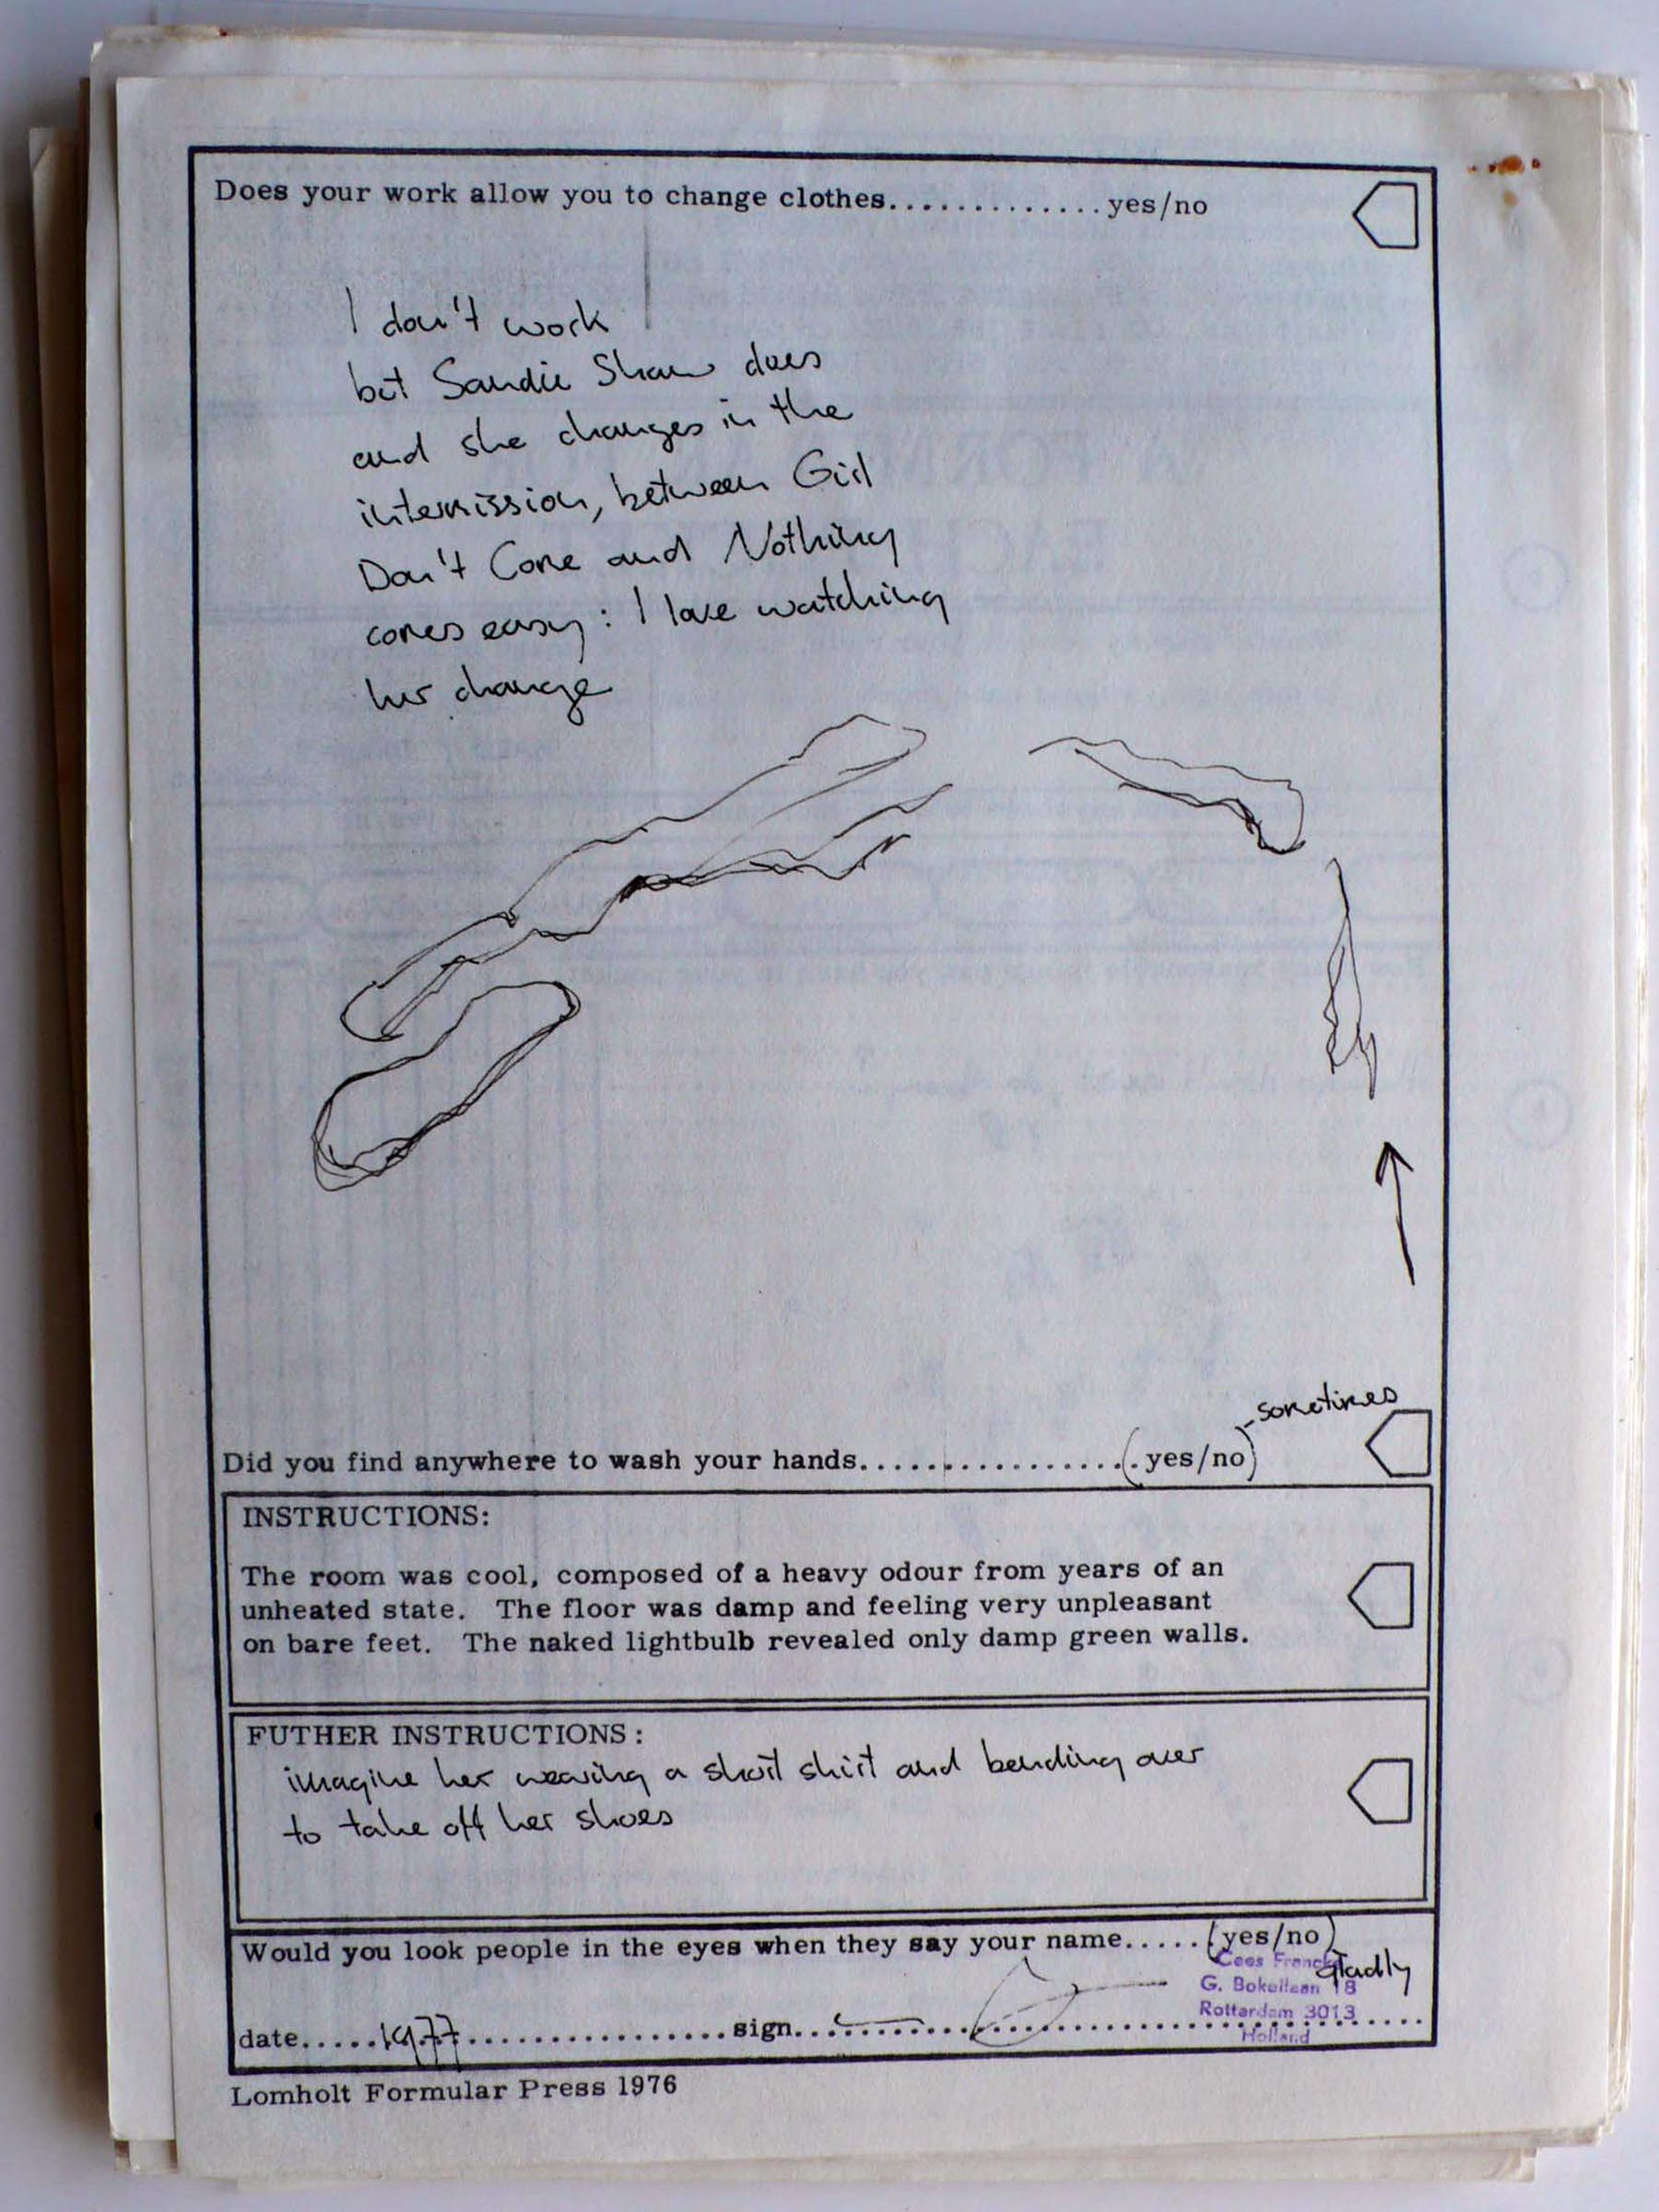 Does your work allow you to change clothes.............yes/no
I don't work
but Sandie Shaw does
and she changes in the
intermission, between Girl
Don't Come and Nothing
comes easy: I love watching
her change
sometimes
Did you find anywhere to wash your hands.................(yes/no)
INSTRUCTIONS:
The room was cool, composed of a heavy odour from years of an
unheated state. The floor was damp and feeling very unpleasant
on bare feet. The naked lightbulb revealed only damp green walls.
FUTHER INSTRUCTIONS:
imagine her wearing a short shirt and bending over
to take off her shoes
Would you look people in the eyes when they say your name.....(yes/no)
Cees Francke gladly
G. Bokellaan 18
Rotterdam 3013
date.....1977................sign.............................
Holland
Lomholt Formular Press 1976